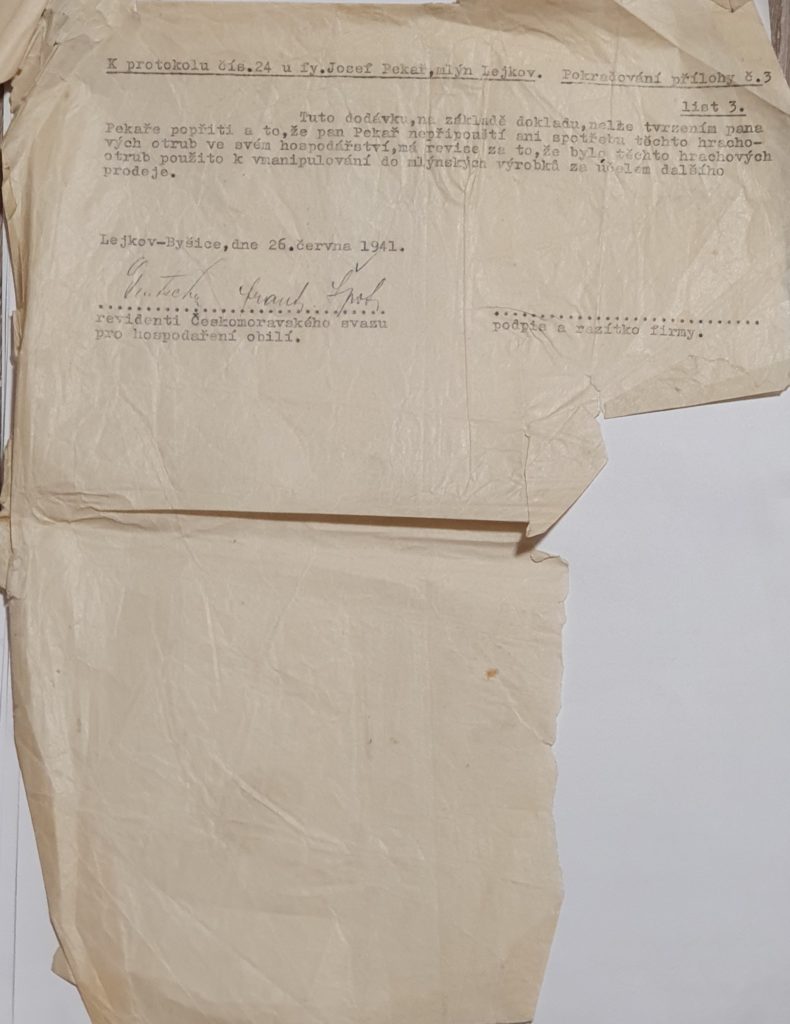 K protokolu čís.24 u fy.Josef Pekař,mlýn Lejkov. Pokračování přílohy č.3
list 3.
Tuto dodávku,na základě dokladu,nelze tvrzením pana
Pekaře popříti a to,že pan Pekař nepřipouští ani spotřebu těchto hracho-
vých otrub ve svém hospodářství,má revise za to,že bylo těchto hrachových
otrub použito k vmanipulování do mlýnských výrobků za účelem dalšího
prodeje.
Lejkov-Byšice,dne 26.června 1941.
revidenti Českomoravského svazu
pro hospodaření obilí.
podpis a razítko firmy.